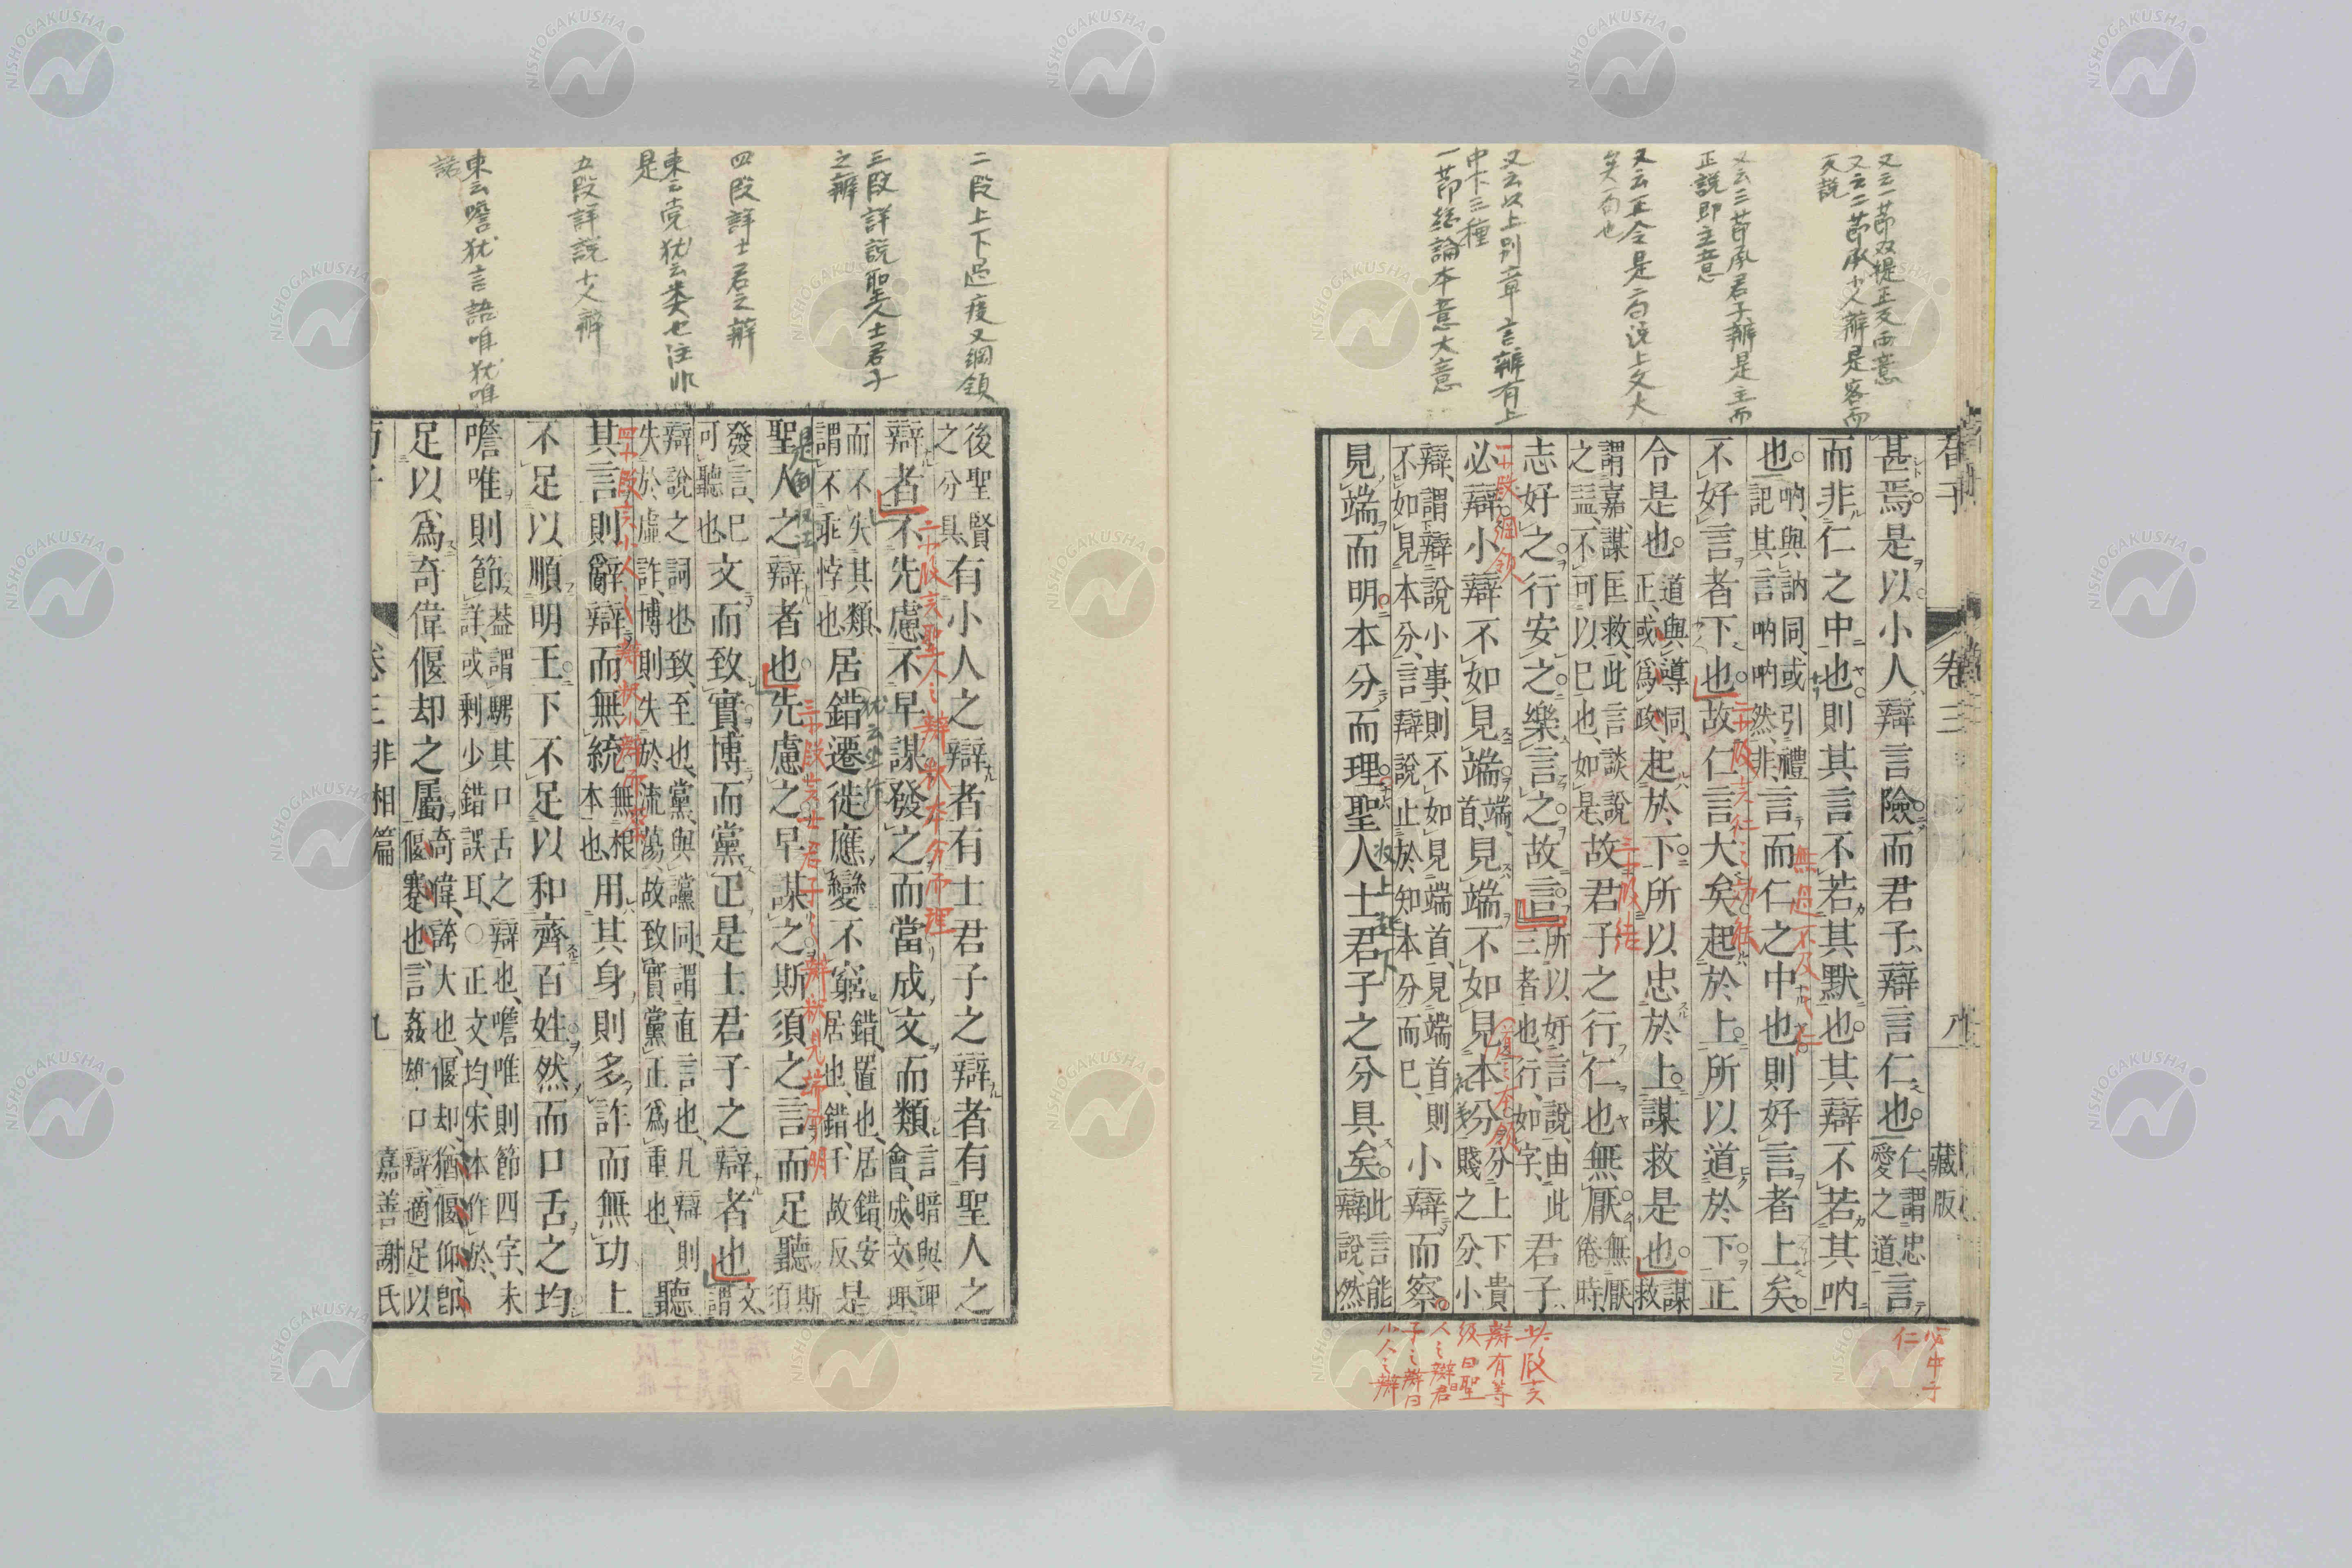 又云一節双提正反両意
又云二節承小人辯是客而
反説
又云三節承君子辯是主而
正説即主意
又云正令是二句説上文大
矣一句也
又云以上別章言辯有上
中下三種
一節総論本意大意
卷三 八 藏版
甚焉是以小人辯言險而君子辯言仁也仁謂忠愛之道言
而非仁之中也則其言不若其默也其辯不若其吶
也吶與訥同或引禮記其言吶吶然非言而仁之中也則好言者上矣
不好言者下也故仁言大矣起於上所以道於下正
令是也道與導同正或爲政起於下所以忠於上謀救是也謀救
謂嘉謀匡救此言談說之益不可以已也如是故君子之行仁也無厭無厭倦時
志好之行安之樂言之故言所以好言說由此三者也行如字君子
必辯小辯不如見端端首見端不如見本分分上下貴賤之分小
辯謂辯說小事則不如見端首見端首則不如見本分言辯說止於知本分而已小辯而察
見端而明本分而理聖人士君子之分具矣此言能辯說然
二十段言仁言之功能
三十段結
一十段綱領
収上起下
共段言
辯有等
級曰聖
人之辯曰君
子之辯曰
小人之辯
二段上下過度又綱領
三段詳説聖人士君子
之辯
四段詳士君之辯
東云党犹云类也注非
是
五段詳説小人辯
東云噡犹言語唯犹唯
諾
後聖賢之分具有小人之辯者有士君子之辯者有聖人之
辯者不先慮不早謀發之而當成文而類言暗與理會成文理
而不失其類謂不乖悖也居錯遷徙應變不窮錯置也居錯安居也錯千故反是
聖人之辯者也先慮之早謀之斯須之言而足聽斯須
發言已可聽也文而致實博而黨正是士君子之辯者也文謂
辯說之詞也致至也黨與讜同謂直言也凡辯則失於虛詐博則失於流蕩故致實黨正爲重也聽
其言則辭辯而無統無根本也用其身則多詐而無功上
不足以順明王下不足以和齊百姓然而口舌之均
噡唯則節蓋謂騁其口舌之辯也噡唯則節四字未詳或剩少錯誤耳○正文均宋本作於
足以爲奇偉偃却之屬奇偉誇大也偃却猶偃仰即偃蹇也言姦雄口辯適足以
卷三 非相篇 九 嘉善謝氏
二十段言聖人之辯叙本分而理
三十段言士君子之辯叙見端而明
四十段言小人之辯叙小辯而察